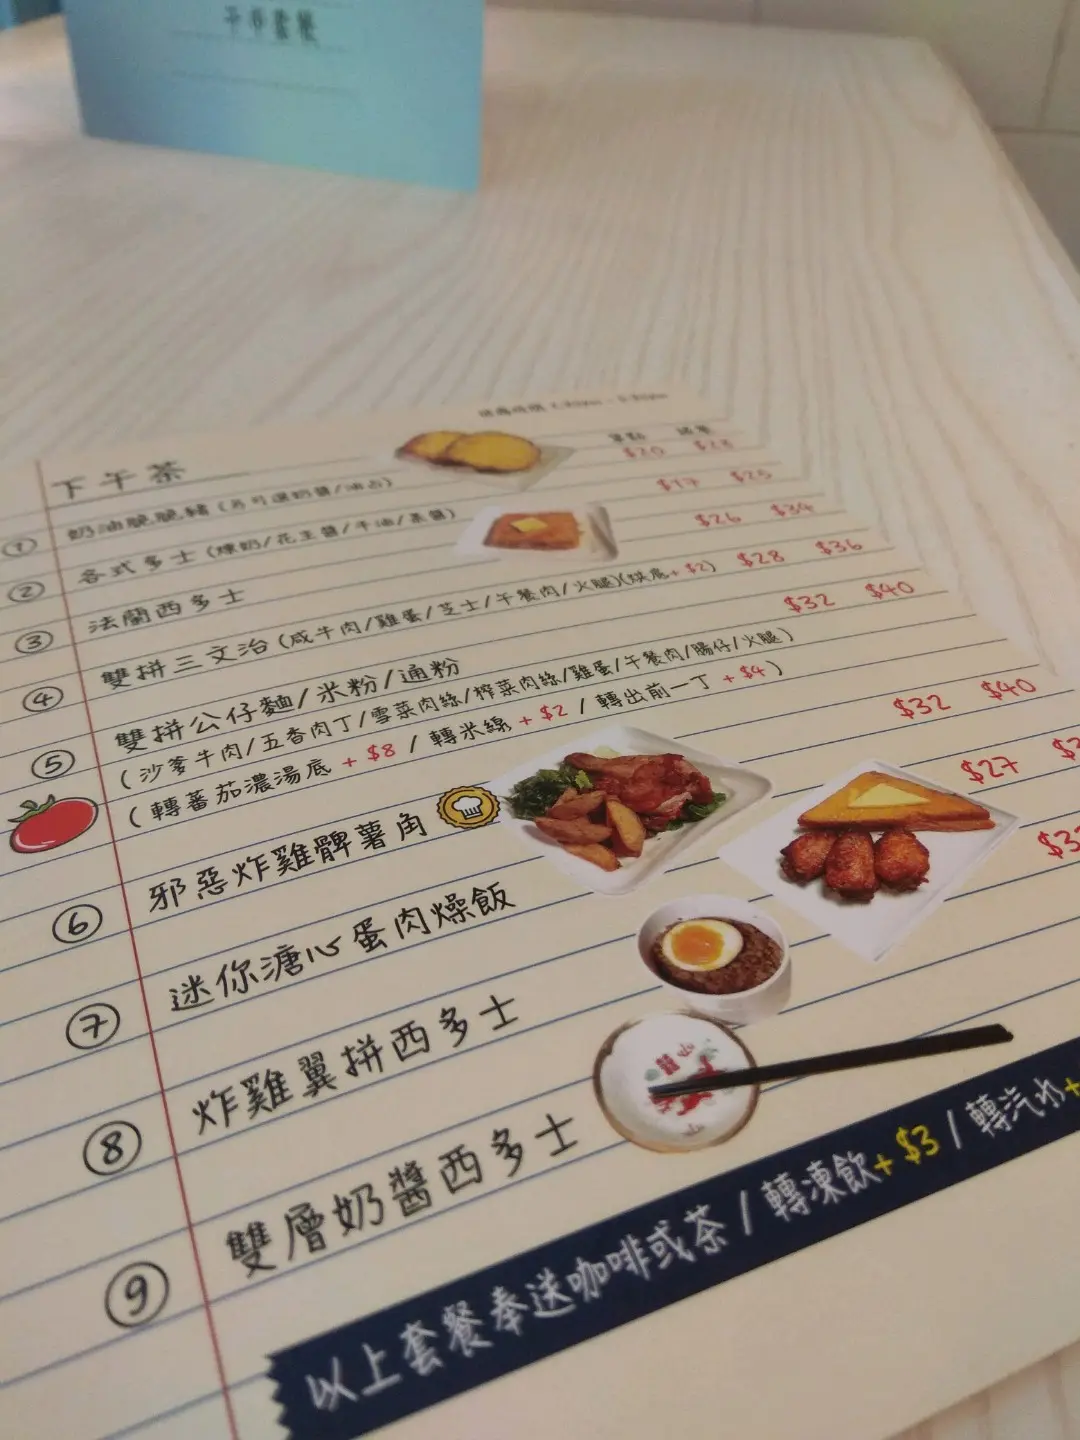 午市套餐
供應時間
下午茶
單點 跟餐
① 奶油脆脆豬 (另可選奶醬/油占) $20 $28
② 各式多士 (煉奶/花生醬/牛油/果醬) $17 $25
③ 法蘭西多士 $26 $34
④ 雙拼三文治 (咸牛肉/雞蛋/芝士/午餐肉/火腿)(烘底+ $2) $28 $36
⑤ 雙拼公仔麵/米粉/通粉 $32 $40
(沙爹牛肉/五香肉丁/雪菜肉絲/榨菜肉絲/雞蛋/午餐肉/腸仔/火腿)
(轉蕃茄濃湯底 + $8 / 轉米線 + $2 / 轉出前一丁 + $4 )
⑥ 邪惡炸雞髀薯角 $32 $40
⑦ 迷你溏心蛋肉燥飯 $27
⑧ 炸雞翼拼西多士
⑨ 雙層奶醬西多士
以上套餐奉送咖啡或茶 / 轉凍飲+ $3 / 轉汽水+